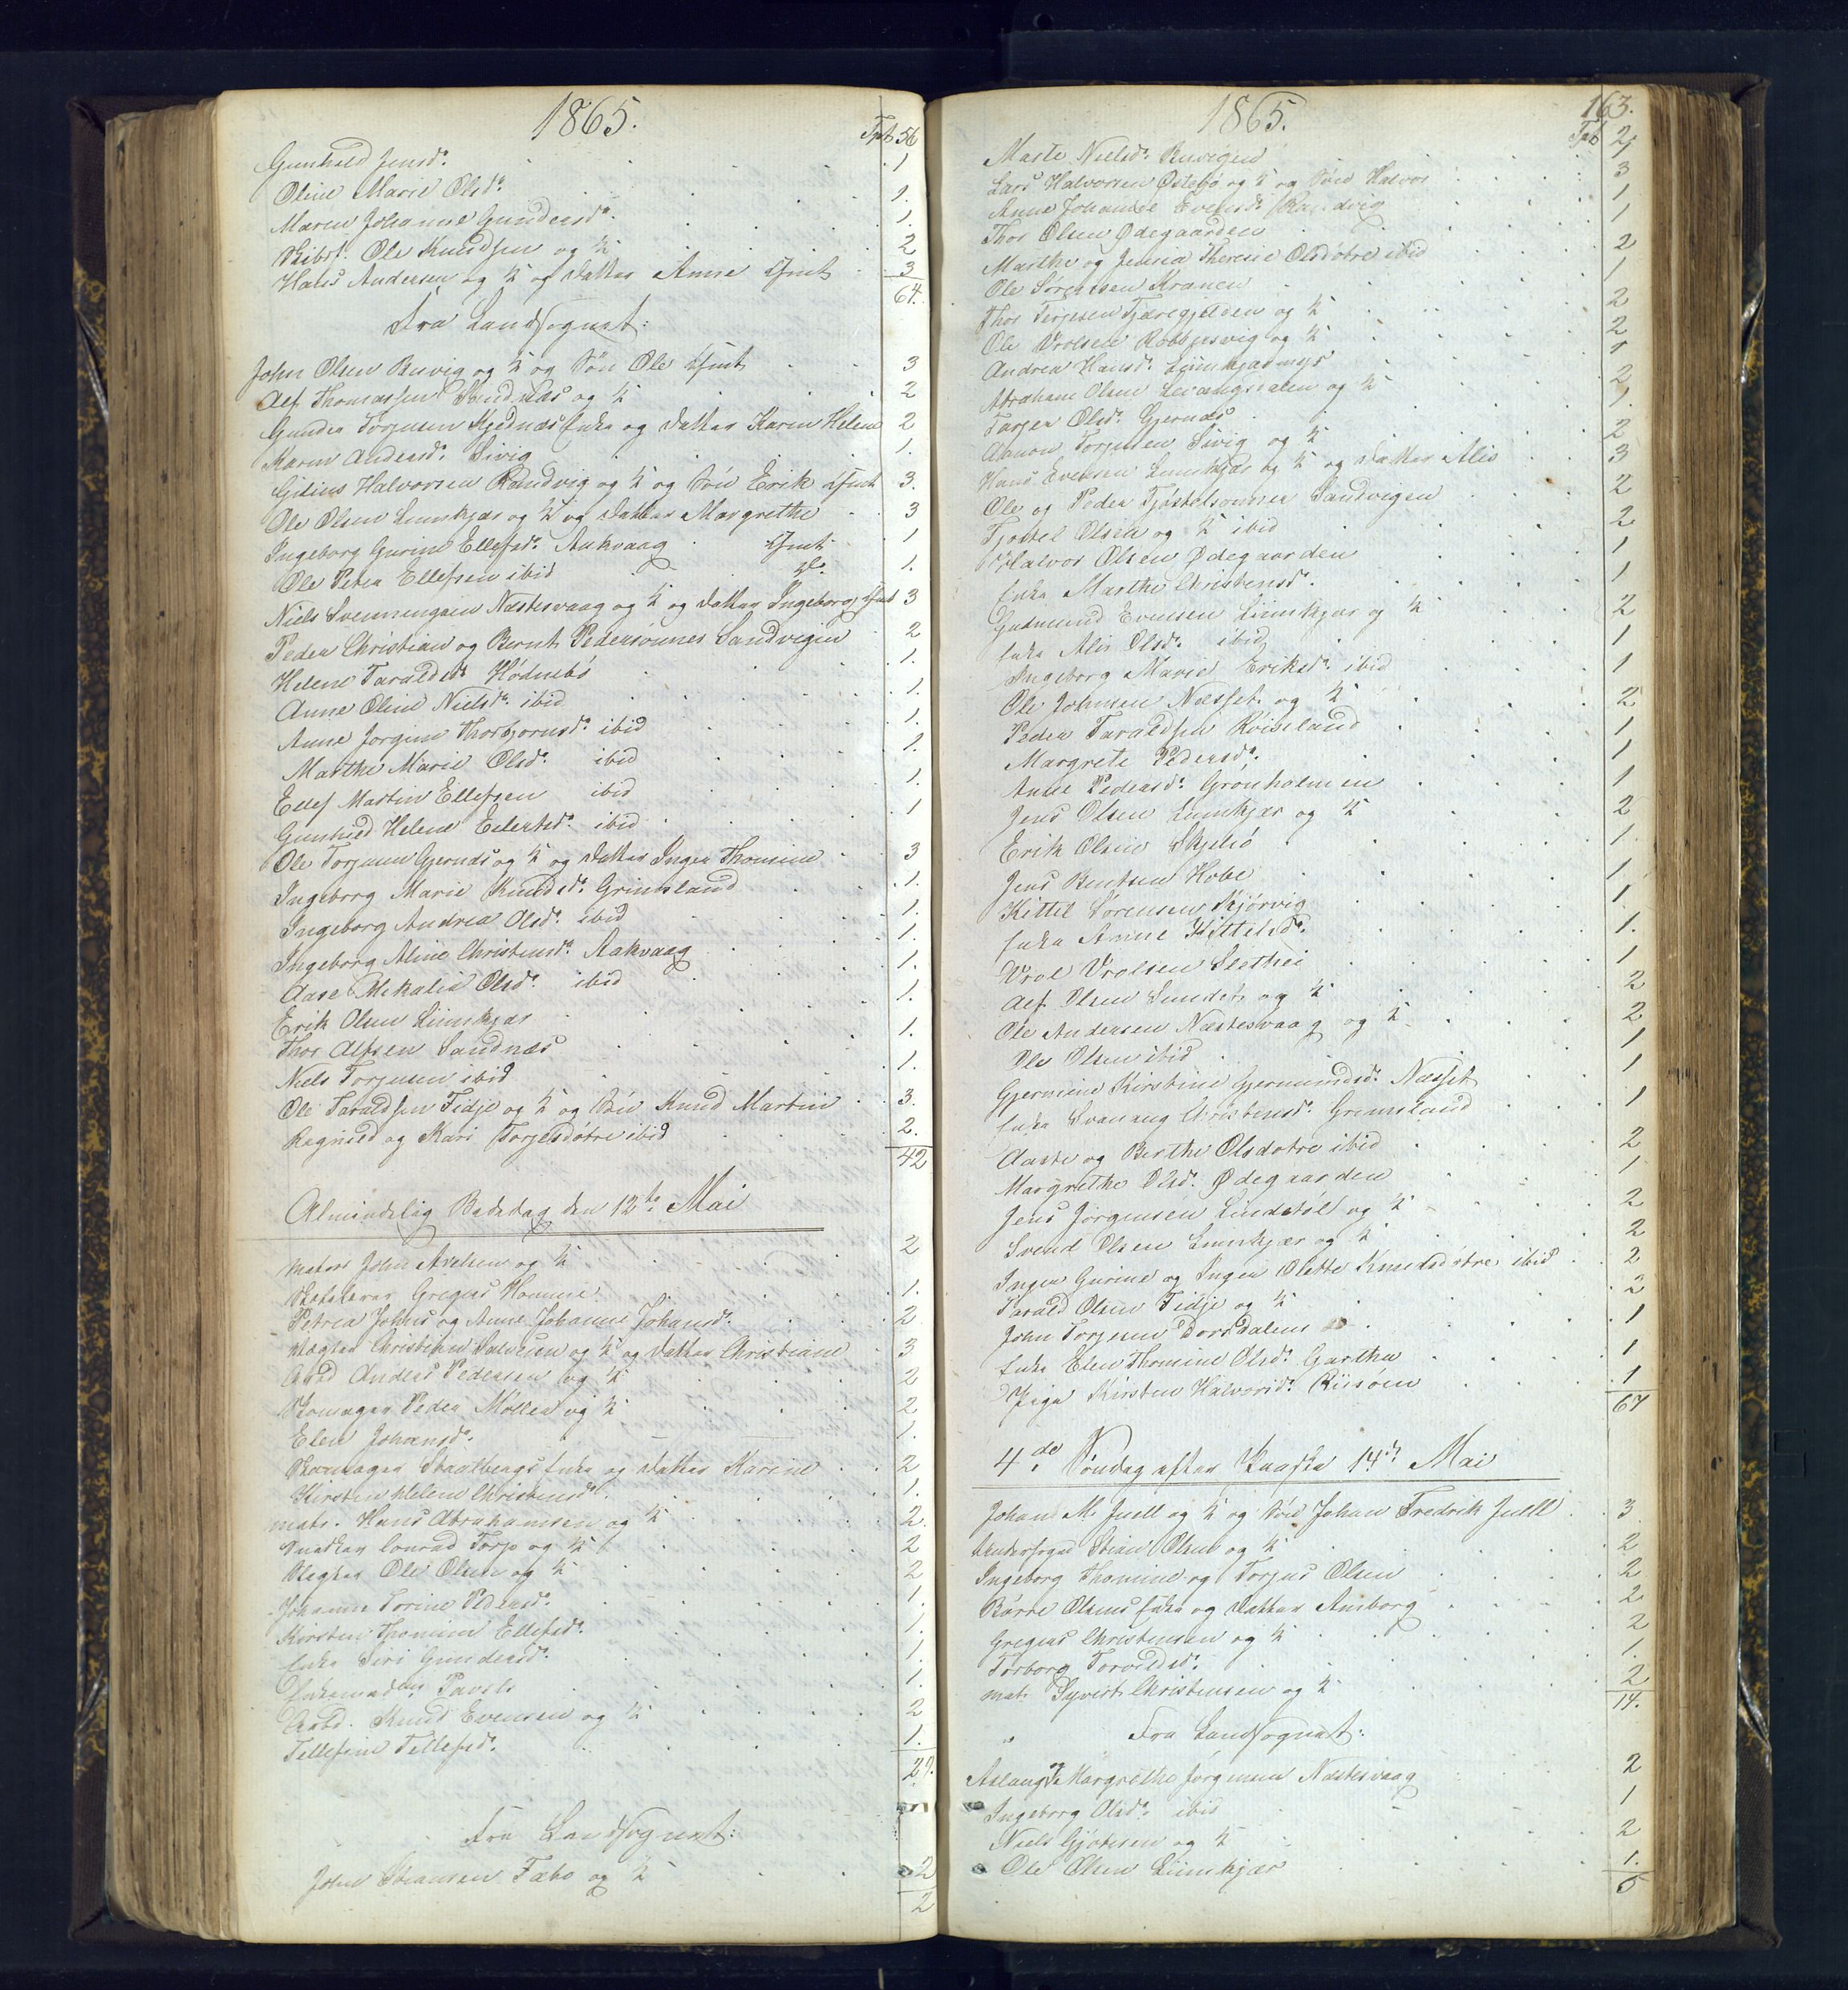 1865.
Tpt 56
Gunhild Jensd. 1
Oline Marie Olsd. 1.
Maren Johanne Gundersd. 1.
Skibst. Ole Knudsen og K 2
Hans Andersen og K og Datter Anne 3
64.
Fra Landsognet:
John Olsen Buvig og K og Søn Ole 3
Alf Thomassen Sandnæs og K 2
Gunder Torjusen Enke og Datter Karen Helene 2
Maren Andersd. Sivig 1.
Halvorsen Randvig og K og Søn Erik 3.
Ole Olsen Lunnkjær og K og Datter Margrethe 3
Ingeborg Gurine Ellefsd. Aakvaag 1
Ole Peter Ellefsen ibid 1.
Niels Svenningsen Næstesvaag og K og Datter Ingeborg 3
Peder Christian og Bernt Pedersønner Sandvigen 2
Helene Taraldsd. Hødnebø 1.
Anne Oline Nielsd. ibid 1.
Anne Jorgine Thorbjørnsd. ibid 1.
Marthe Marie Olsd. ibid 1.
Ellef Martin Ellefsen ibid 1.
Gunhild Helene Eilertsd. ibid 1
Ole Torjusen Gjernæs og K og Datter Inger Thomine 3
Ingeborg Marie Knudsd. Grimsland 1.
Ingeborg Andrea Olsd. ibid 1.
Ingeborg Aline Christensd. Aakvaag 1.
Aase Mekalia Olsd. ibid 1.
Erik Olsen Limkjær 1.
Thor Alfsen Sandnæs 1.
Niels Torjusen ibid 1.
Ole Taraldsen Fidje og K og Søn Knud Martin 3.
Ragnild og Kari Torjesdøtre ibid 2.
42
Almindelig Bededag den 12te Mai
Matros John Axelsen og K 2
Gregers Homme 1.
Petrea Johns og Anne Johanne Johansd. 2
Vægter Christian Salvesen og K og Datter Christiane 3
Arbd Anders Pedersen og K 2
Skomager Peder Møller og K 2
Elen Johansd. 1.
Skomager Staalbergs Enke og Datter Karine 2
Kirsten Helene Christensd. 1.
matr. Hans Abrahamsen og K 2.
Snedker Conrad Torp og K 2
Vægter Ole Olsen og K 2
Johanne Torine Pedersd. 1.
Kirsten Thomine Ellefsd. 1.
Enke Siri Gundersd. 1.
Enkemadm Pavels 1.
Arbd. Knud Evensen og K 2
Tellefine Tellefsd. 1.
27.
Fra Landsognet:
John Stiansen Fæbo og K 2
2
1865.
163.
Tpt 2
Marte Nielsd. Buvigen 1
Lars Halvorsen Østebø og K og Søn Halvor 3
Anne Johanne Evensd. Randvig 1
Thor Olsen Ødegaarden 1
Marthe og Jensia Theresie Olsdøtre ibid 2
Ole Sørensen Kranen 1
Thor Terjesen Tjæregjelden og K 2
Ole Vrolsen Robbesvig og K 2
Andrea Hansd. Limkjærmyr 1
Abraham Olsen Levangsdalen og K 2
Torger Olsd. Gjernæs 1.
Aanon Torjusen Sivig og K 2
Hans Evensen Limkjær og K og Datter Alis 3
Ole og Peder Tjøstelsønner Sandvigen 2
Tjøstel Olsen og K ibid 2
Halvor Olsen Ødegaarden 1
Enke Marthe Christensd. 1
Gudmund Evensen Limkjær og K 2
Enke Alis Olsd. ibid 1
Ingeborg Marie Eriksd. ibid 1
Ole Johnsen Næsset og K 2
Peder Taraldsen Kviseland 1
Margrete Pedersd. 1
Anne Pedersd. Grønholmen 1
Jens Olsen Limkjær og K 2
Erik Olsen Skjelsø 1.
Jens Bentsen Hobe 1
Kittel Sørensen Kjørvig 1
Enke Anne Kittelsd. 1.
Vrol Vrolsen Slethei 1
Alf Olsen Sundet og K 2
Ole Andersen Næstesvaag og K 2
Ole Olsen ibid 1
Gjermine Kirstine Gjermundsd. Næsset 1
Enke Svanaug Christensd. Grimsland 1
Aaste og Berthe Olsdøtre ibid 2
Margrethe Olsd. Ødegaarden 1
Jens Jørgensen Lindstøl og K 2
Svend Olsen Limkjær og K 2
Inger Gurine og Inger Olette Knudsdøtre ibid 2
Tarald Olsen Fidje og K 2
John Torjusen Dorsdalen 1
Enke Elen Thomine Olsd. Garthe 1
Pige Kirsten Halvorsd. Riisøen 1
67
4de Søndag efter Paaske 14de Mai
Johan M. Juell og K og Søn Johan Fredrik Juell 3
Stian Olsen og K 2
Ingeborg Thomine og Torjus Olsen 2
Børre Olsens Enke og Datter Amborg 2
Gregers Christensen og K 2
Torborg Torvildsd. 1.
mat. Syvert Christensen og K 2
14.
Fra Landsognet:
Aslaug og Margrethe Jørgensen Næstesvaag 2
Ingeborg Olsd. ibid 1
Niels Gjøtesen og K 2
Ole Olsen Limkjær 1.
5